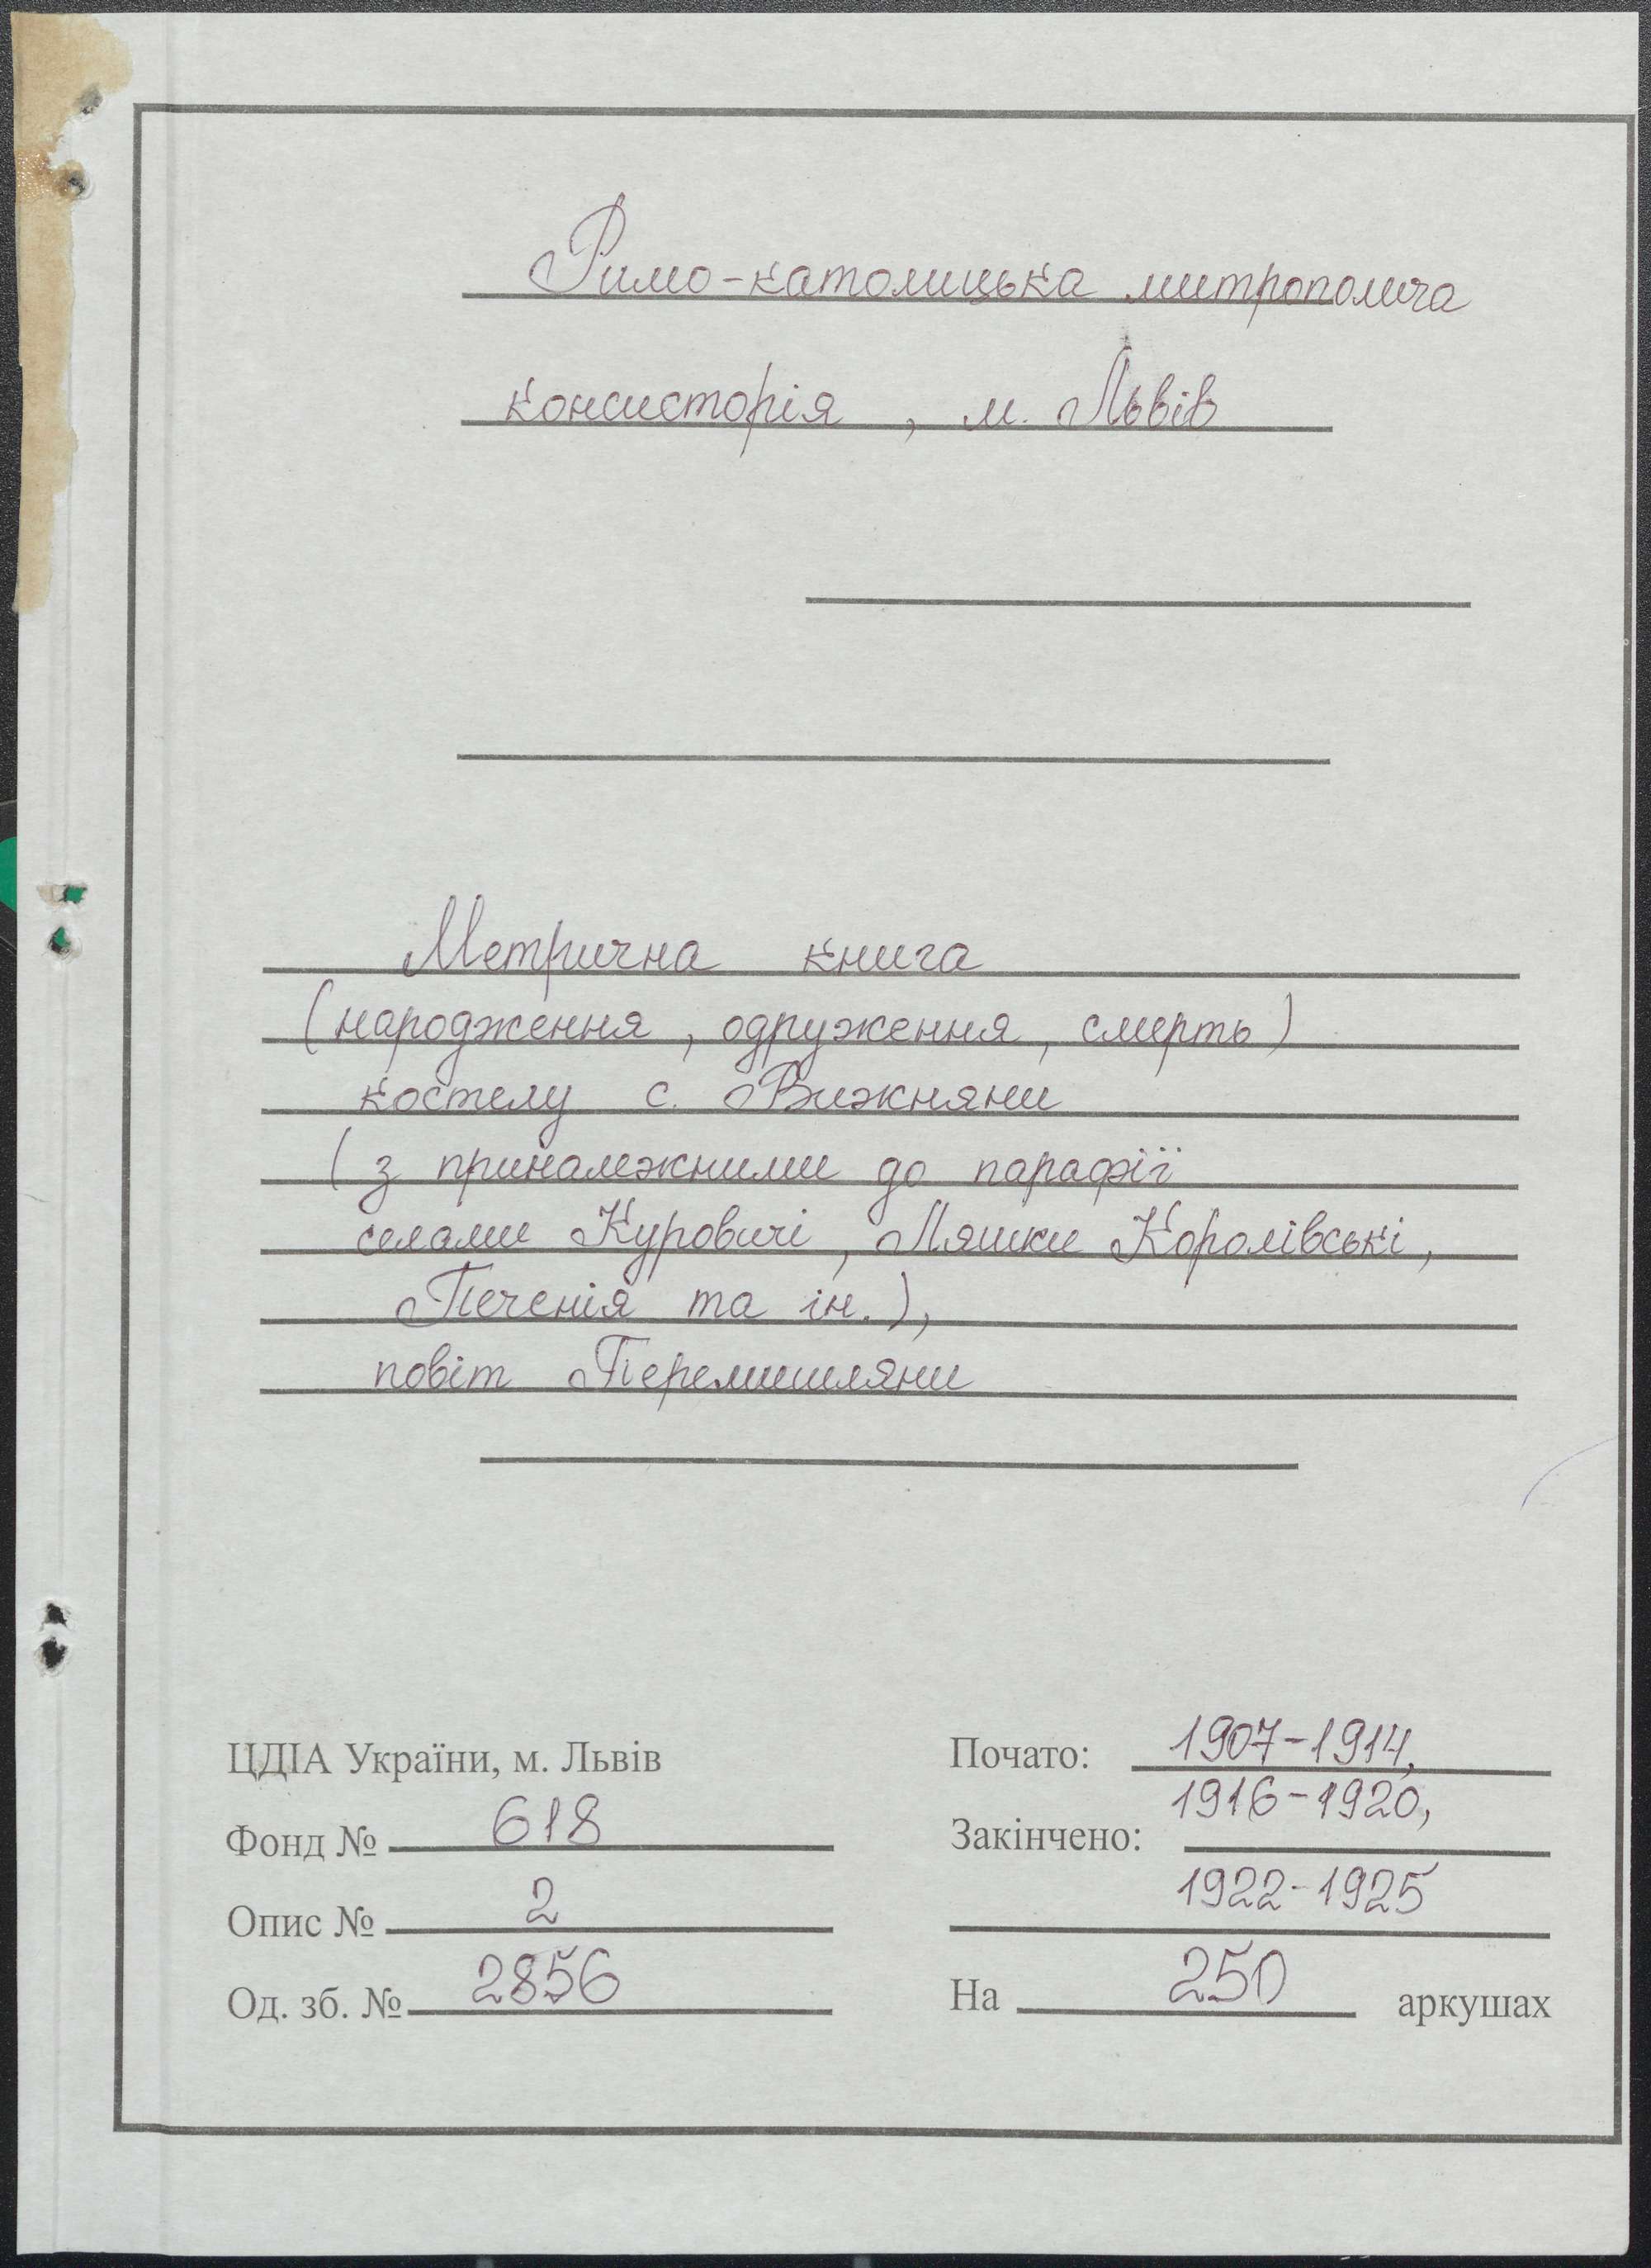 Римо-католицька митрополича
консисторія, м. Львів
Метрична книга
(народження, одруження, смерть)
костелу с. Вижняни
(з приналежними до парафії
селами Куровичі, Ляшки Королівські,
Печенія та ін.),
повіт Перемишляни
ЦДІА України, м. Львів
Почато: 1907-1914,
1916-1920,
Фонд № 618
Закінчено:
1922-1925
Опис № 2
Од. зб. № 2856
На 250 аркушах